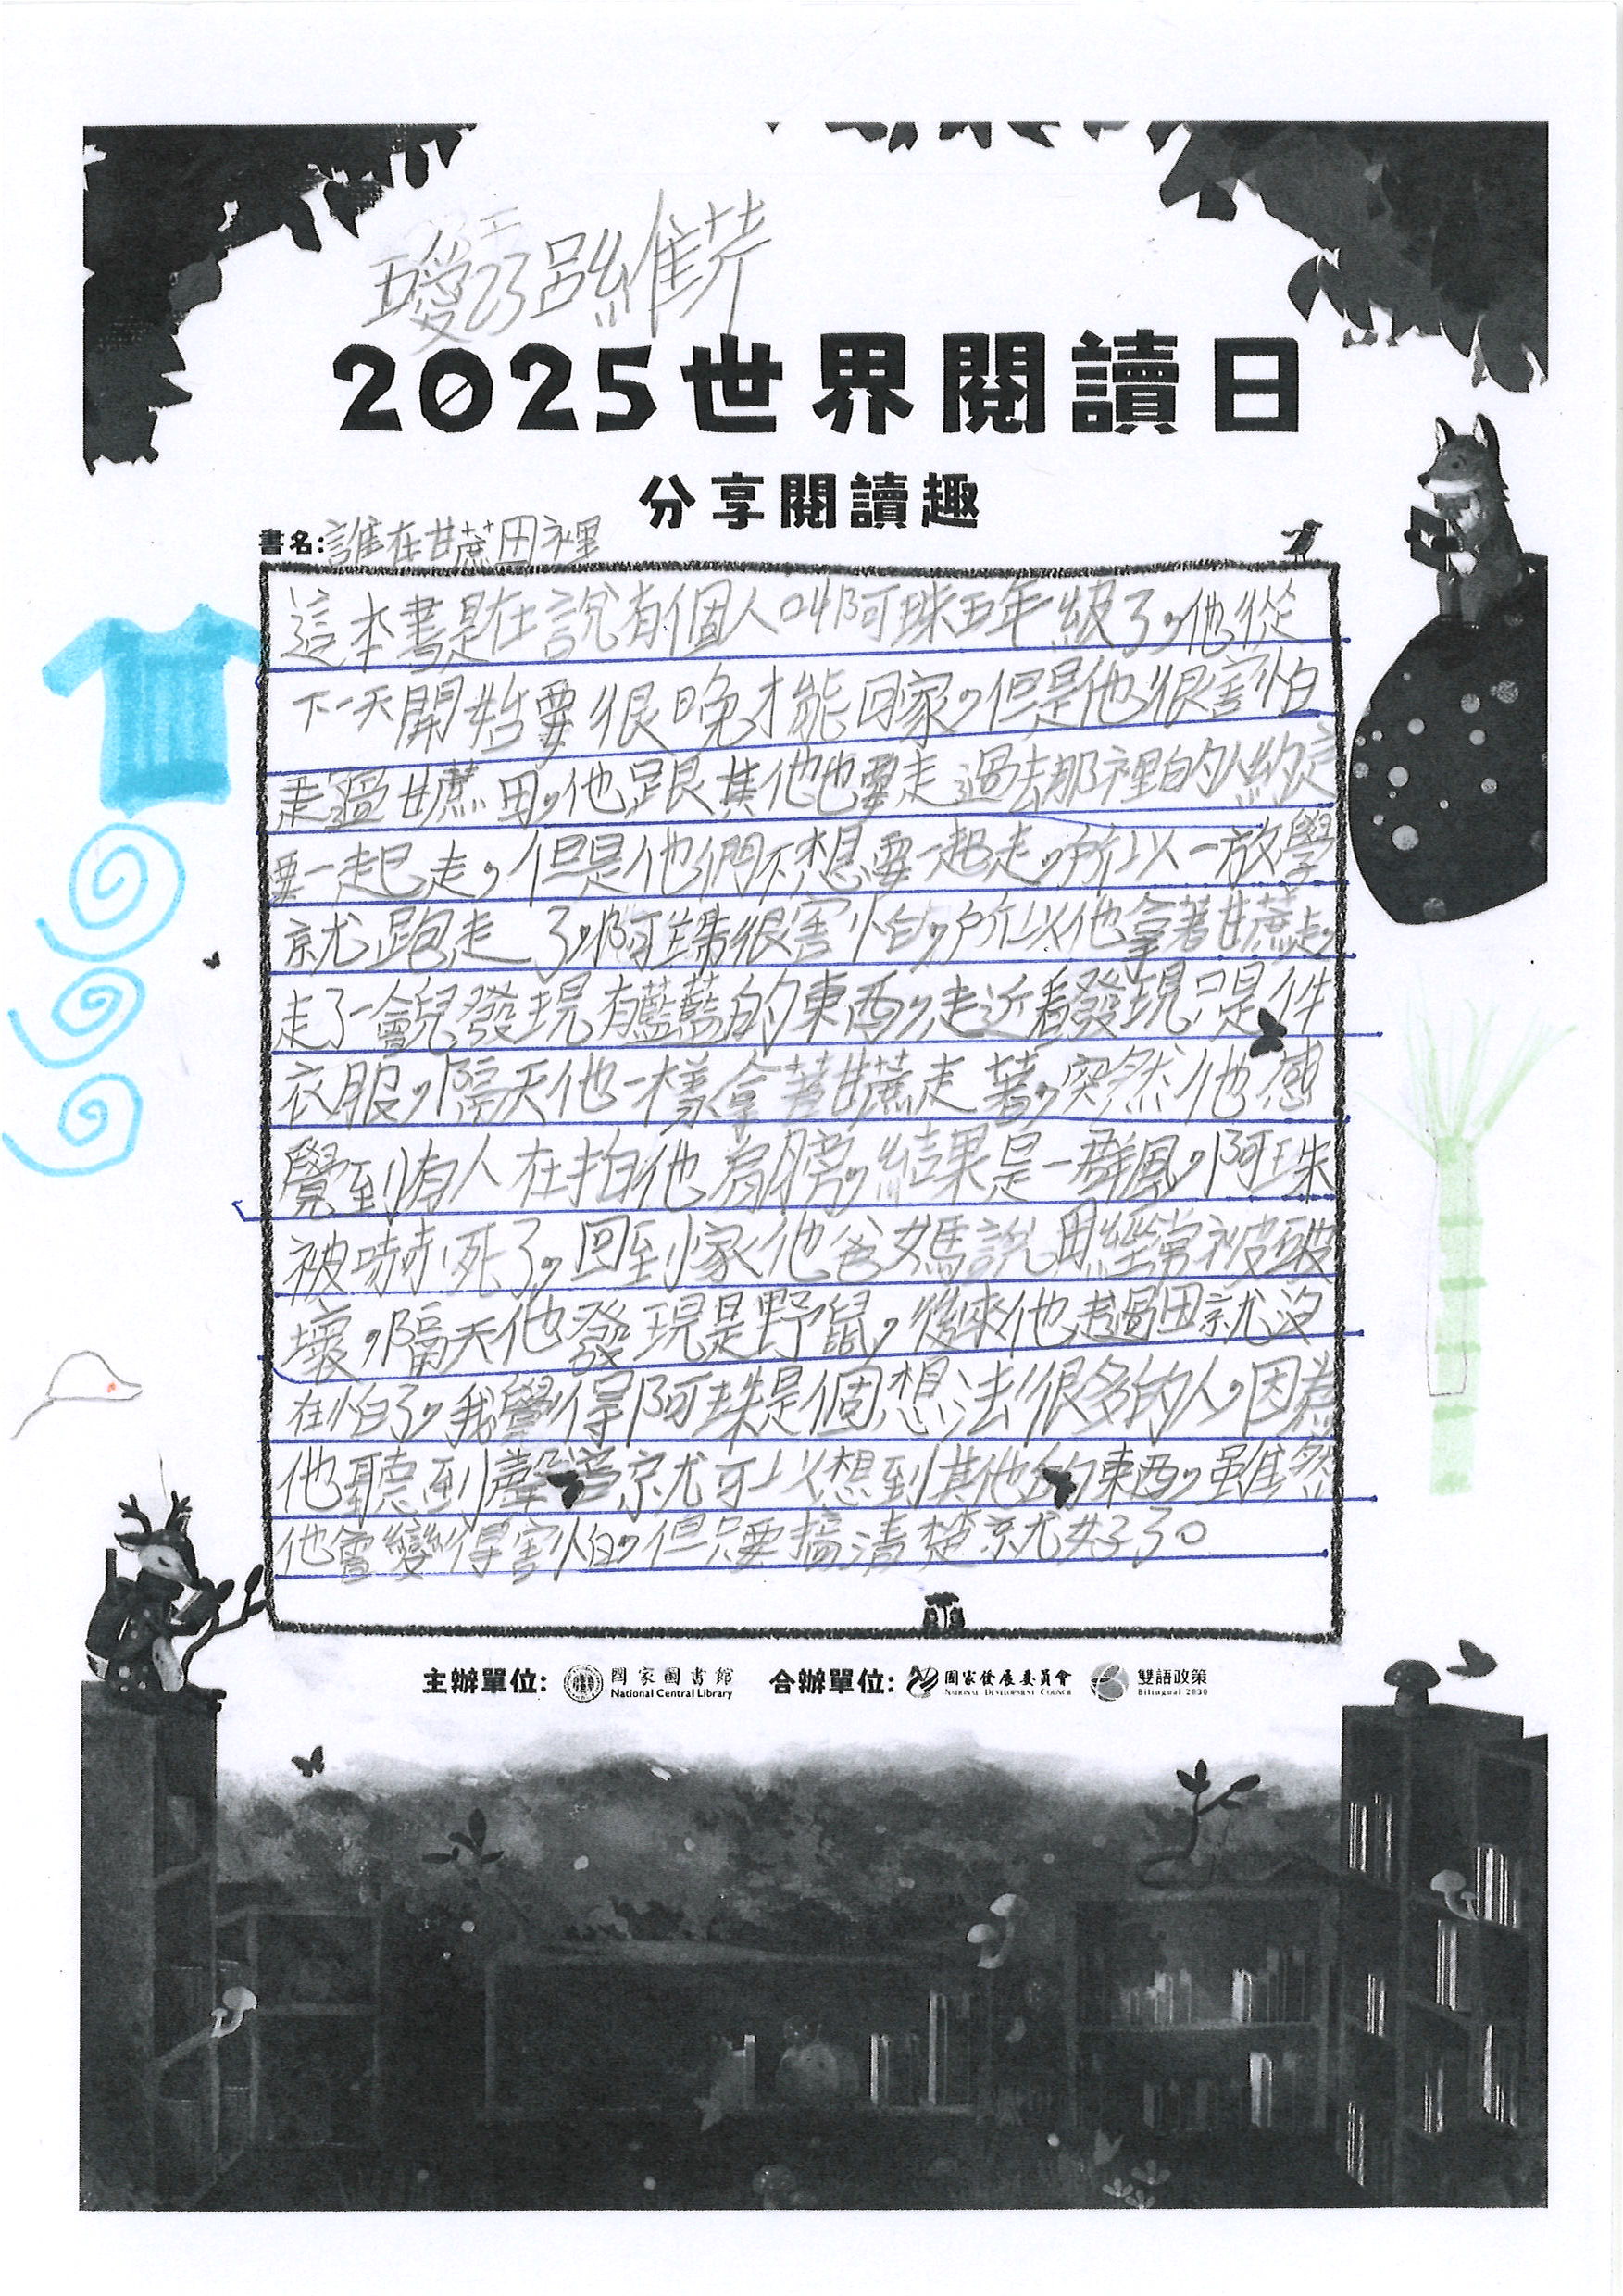 五愛23呂維芹
2025世界閱讀日
分享閱讀趣
書名:誰在甘蔗田裡
這本書是在說有個人叫阿珠五年級了,他從
下一天開始要很晚才能回家,但是他很害怕
走過甘蔗田,他跟其他也要走過去那裡的人約定
要一起走,但是他們不想要一起走,所以一放學
就跑走了,阿珠很害怕,所以他拿著甘蔗走,
走了一會兒發現有藍藍的東西,走近看發現只是件
衣服,隔天他一樣拿著甘蔗走著,突然他感
覺到有人在拍他肩膀,結果是一群風,阿珠
被嚇死了,回到家他爸媽說田經常被破
壞,隔天他發現是野鼠,後來他走過田就沒
在怕了,我覺得阿珠是個想法很多的人,因為
他聽到聲音就可以想到其他的東西,雖然
他會變得害怕,但只要搞清楚就好了。
主辦單位: 國家圖書館 National Central Library 合辦單位: 國家發展委員會 National Development Council 雙語政策 Bilingual 2030